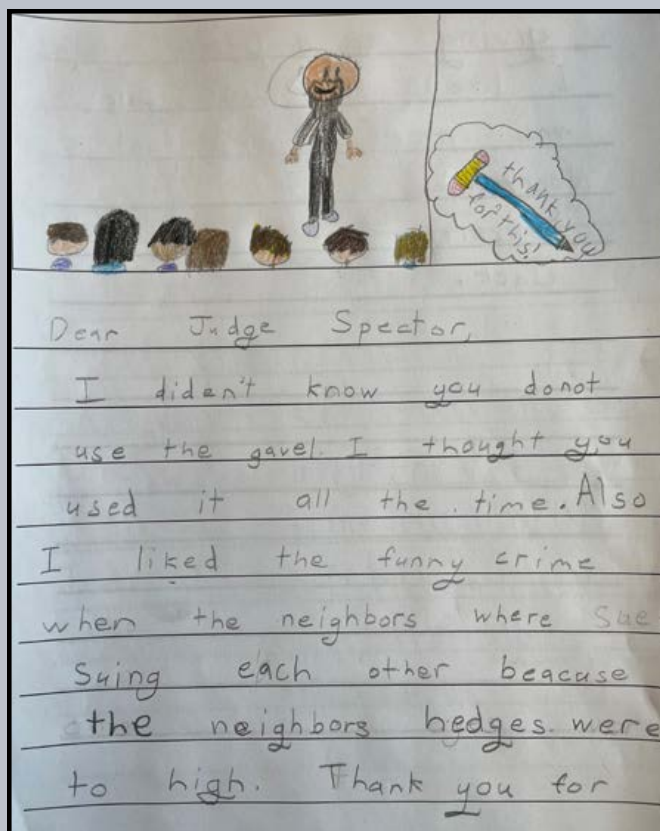 thank you
for this!
Dear Judge Spector,
I diden't know you donot
use the gavel. I thought you
used it all the time. Also
I liked the funny crime
when the neighbors where Sue
Suing each other beacuse
the neighbors hedges were
to high. Thank you for